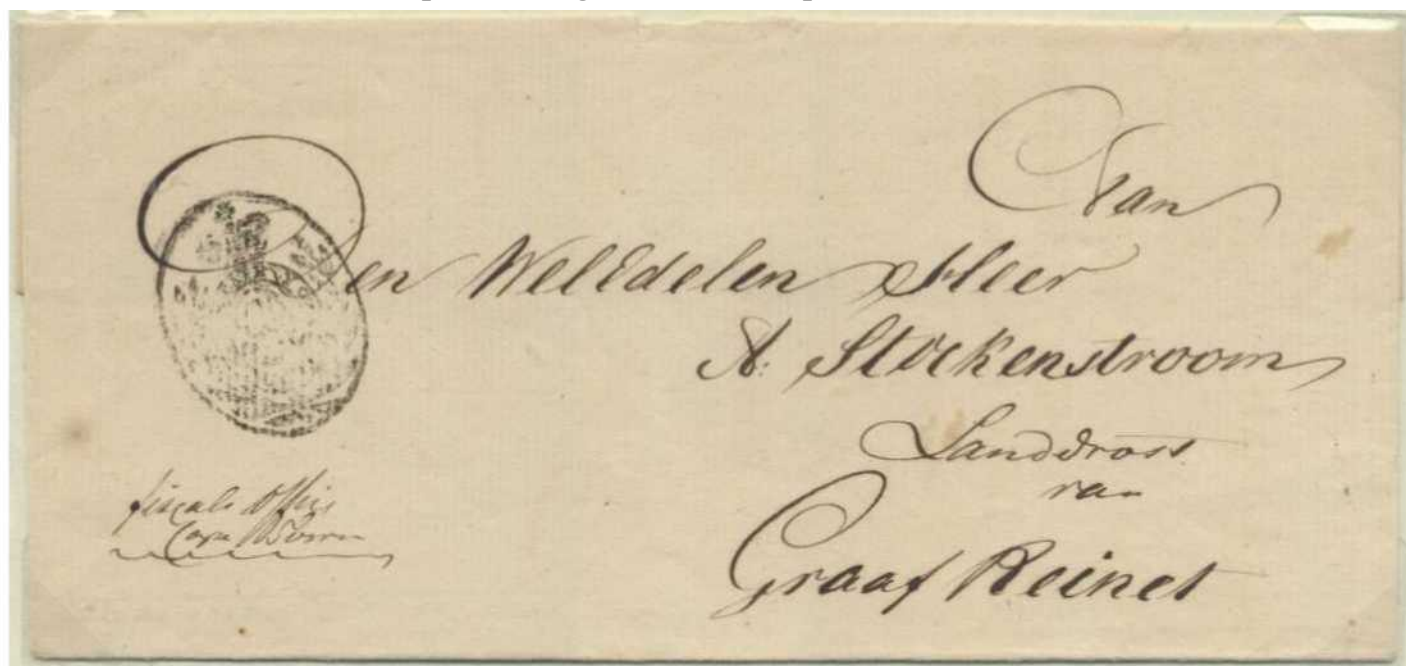 Aan
Den WelEdelen Heer
A: Stockenstroom
Landdrost
van
Graaf Reinet
fiscals Office
Cape Town